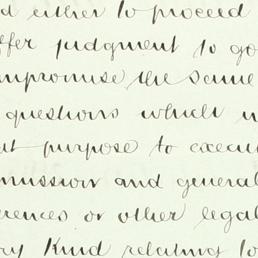 d either to proceed
ffer judgment to go
ompromise the same
questions which
at purpose to execu
mission and general
rences or other legal
ry kind relating to